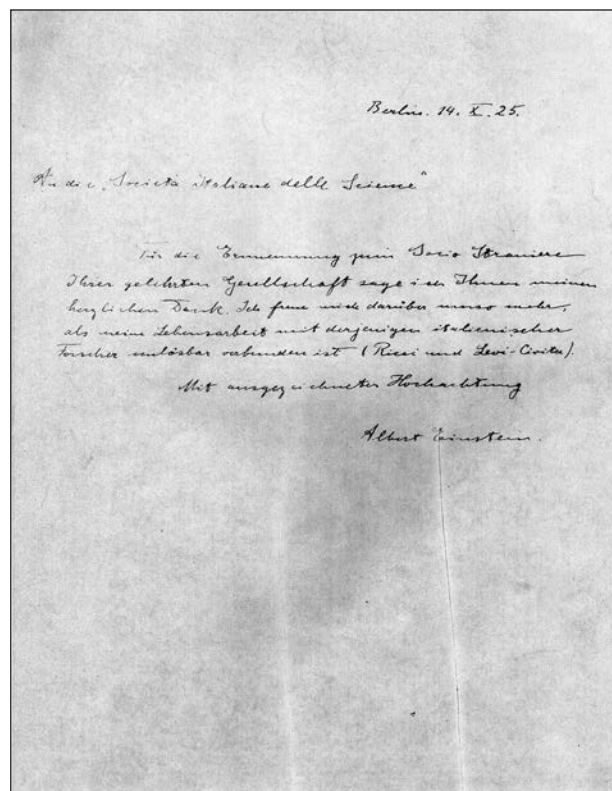 Berlin. 14. X. 25.
An die „Società italiana delle Scienze"
Für die Ernennung zum Socio Straniero
Ihrer gelehrten Gesellschaft sage ich Ihnen meinen
herzlichen Dank. Ich freue mich darüber umso mehr,
als meine Lebensarbeit mit derjenigen italienischer
Forscher unlösbar verbunden ist (Ricci und Levi-Civita).
Mit ausgezeichneter Hochachtung
Albert Einstein.